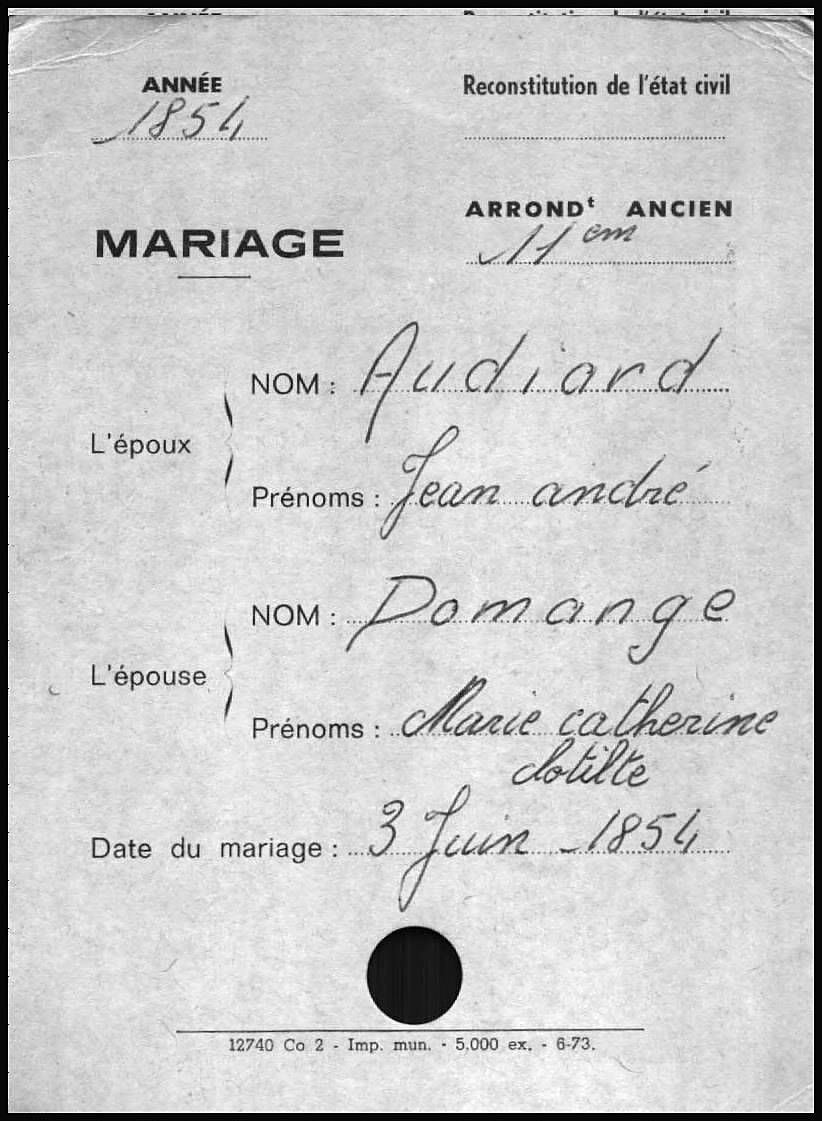 ANNÉE
1854
Reconstitution de l'état civil
ARRONDt ANCIEN
11 em
MARIAGE
L'époux
NOM : Audiard
Prénoms : Jean andré
L'épouse
NOM : Domange
Prénoms : Marie catherine
clotilte
Date du mariage : 3 Juin 1854
12740 Co 2 - Imp. mun. - 5.000 ex. - 6-73.